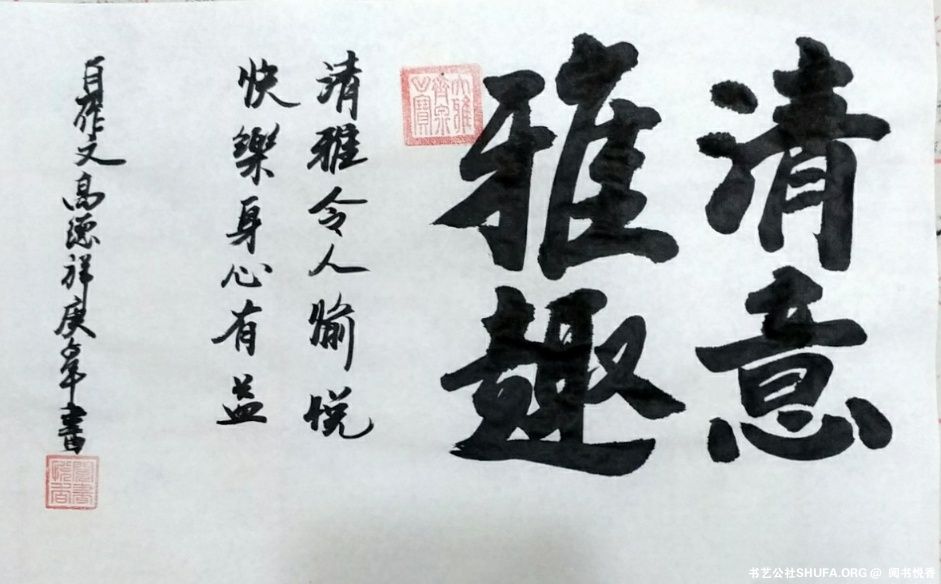 清意
雅趣
清雅令人愉悦
快樂身心有益
自作文高德祥庚子年書
书艺公社SHUFA.ORG @ 闻书悦香